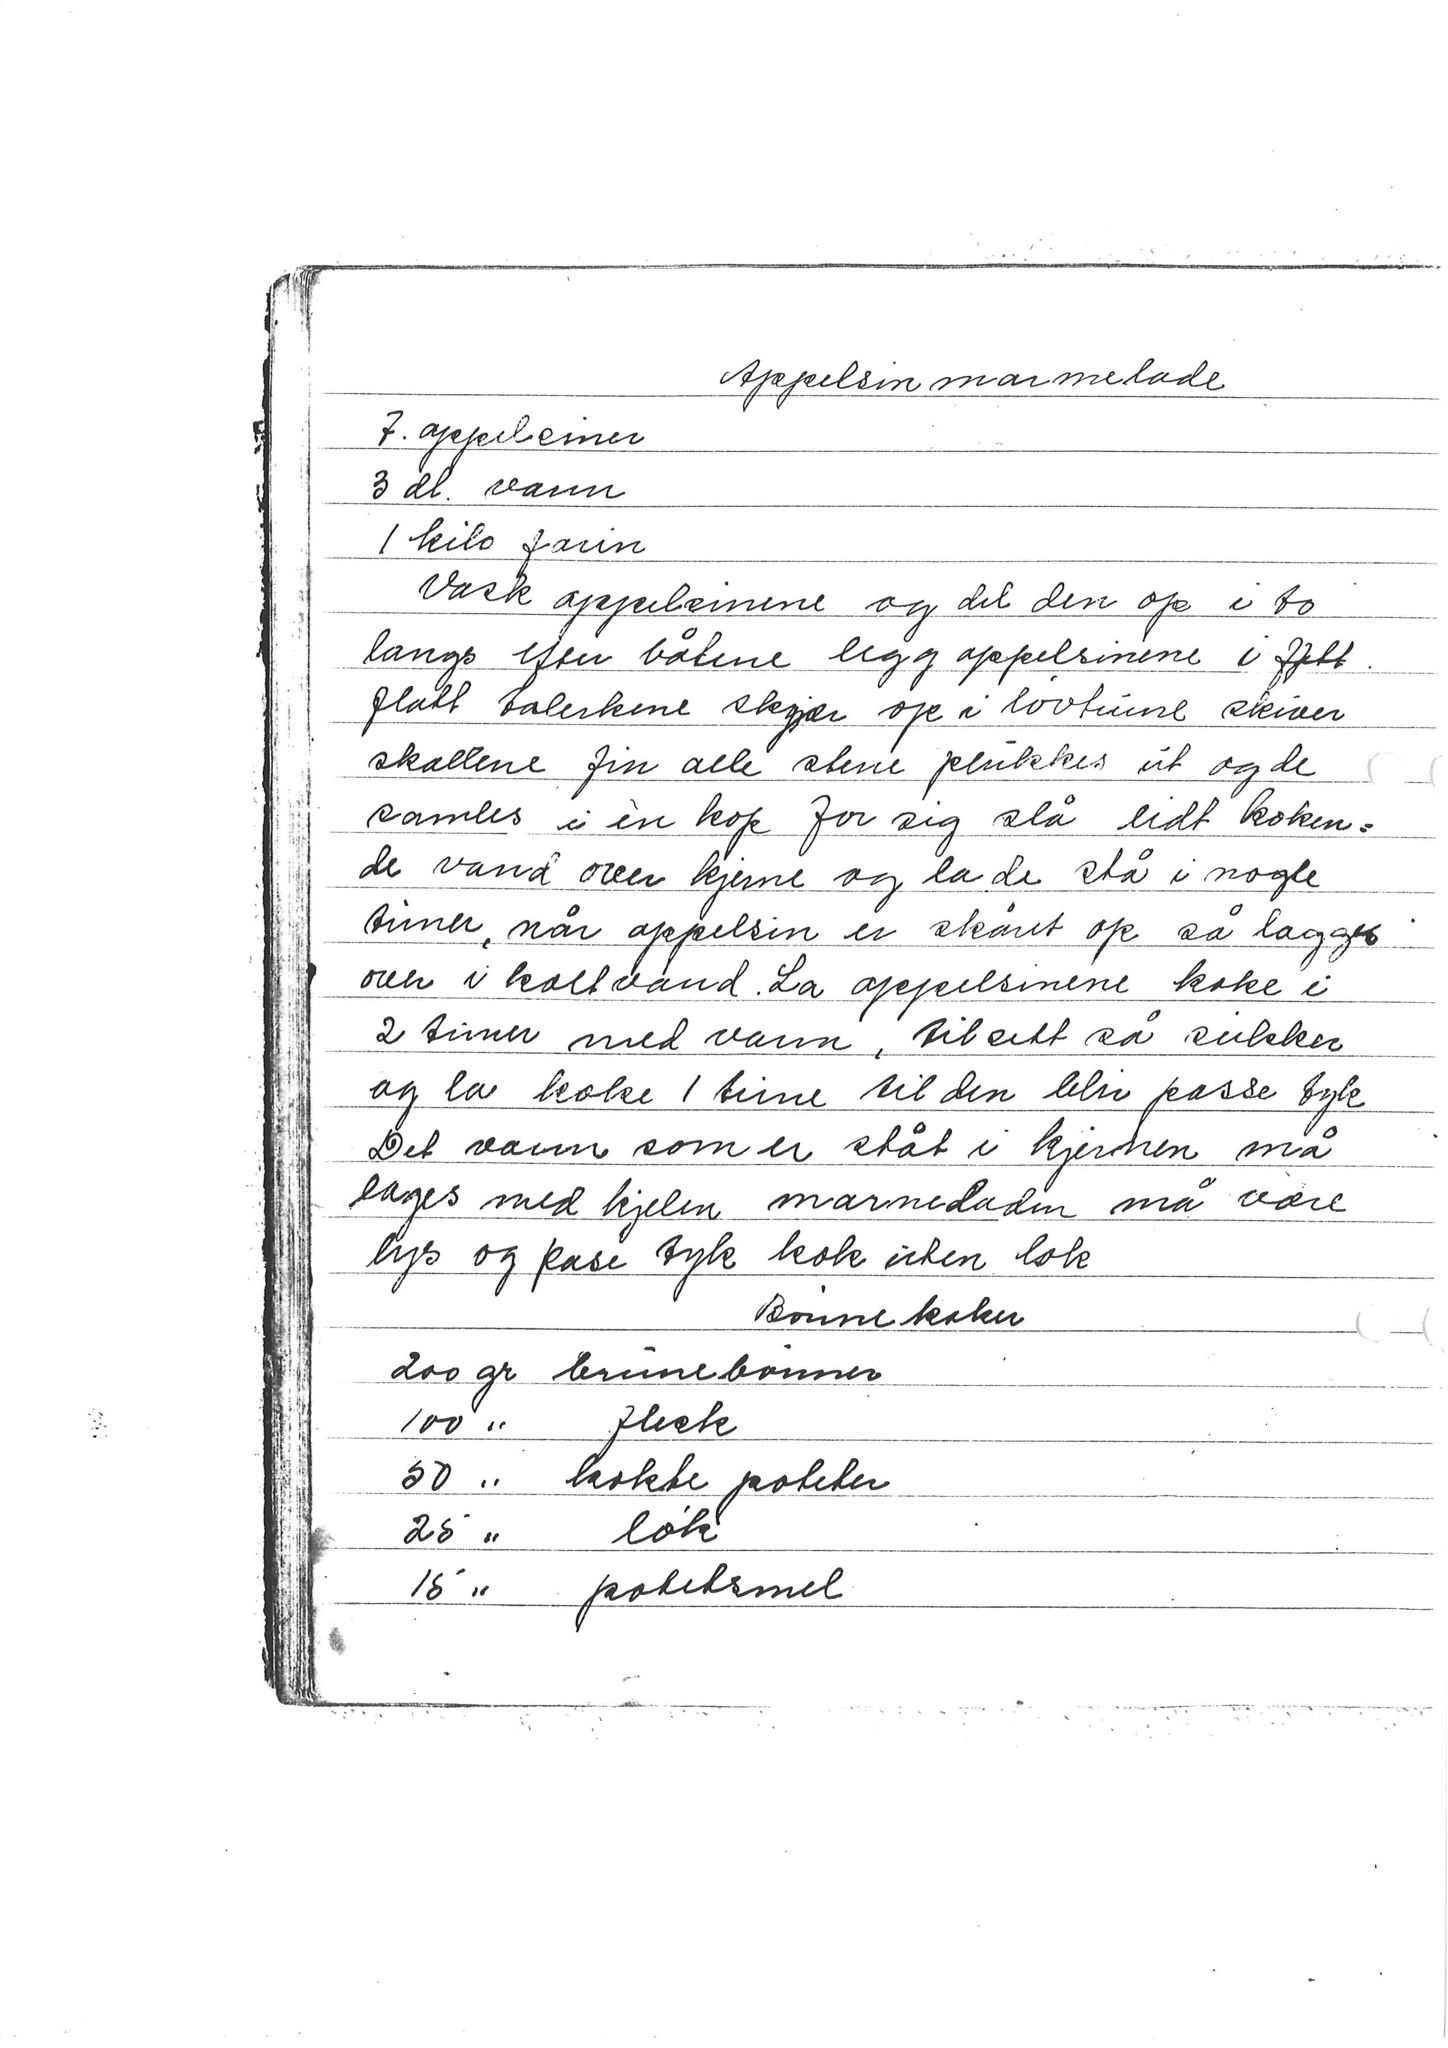 Appelsinmarmelade
7. appelsiner
3 dl. vann
1 kilo farin
Vask appelsinene og del den op i to
langs efter båtene legg appelsinene i
flatt talerkene skjær op i løvtunne skiver
skallene fin alle stene plukkes ut og de
samles i èn kop for sig slå lidt koken=
de vand over kjerne og la de stå i nogle
timer, når appelsin er skåret op så lagges
over i kolt vand. La appelsinene koke i
2 timer med vann, tilsett så sukker
og la koke 1 time til den blir passe tyk
Det vann som er ståt i kjernen må
lages med kjelen marmeladen må være
lys og pase tyk kok uten lok
Bønne kaker
200 gr brune bønner
100 " flesk
50 " kokte poteter
25 " løk
15 " potetsmel